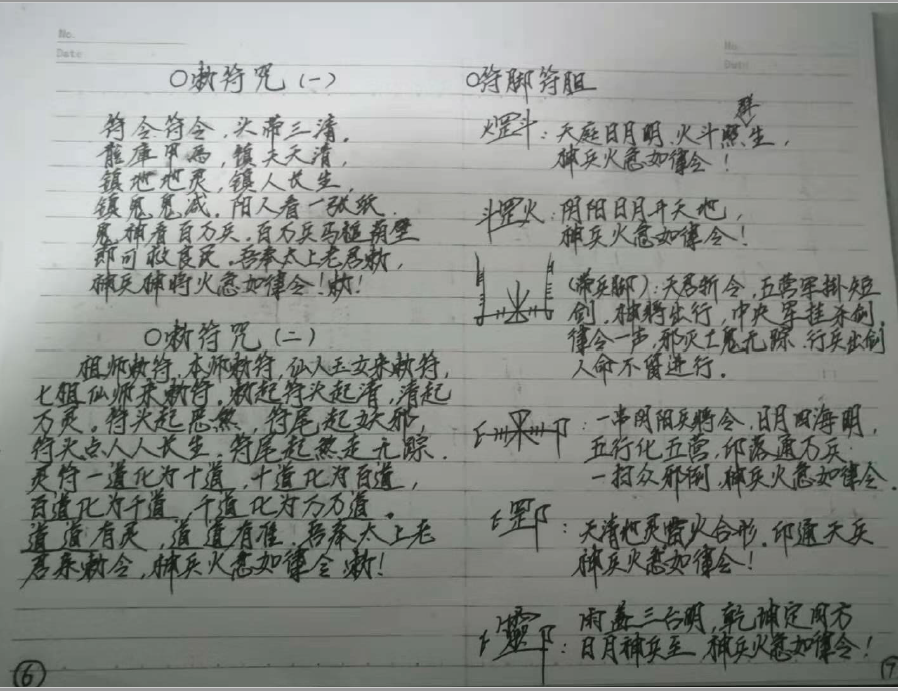 No.
Date
○敕符咒(一)
符令符令,头带三清,
镇天天清,
镇地地灵,镇人长生,
镇鬼鬼灭,阳人看一张纸,
鬼神看百万兵,百万兵马
即可救良民,吾奉太上老君敕,
神兵神将火急如律令!敕!
○敕符咒(二)
祖师敕符,本师敕符,仙人玉女来敕符,
七祖仙师来敕符,敕起符头起清,清起
万灵,符头起恶煞,符尾起妖邪,
符头点人人长生,符尾起煞走无踪,
灵符一道化为十道,十道化为百道,
百道化为千道,千道化为万万道。
道道有灵,道道有准,吾奉太上老
君来敕令,神兵火急如律令敕!
6
No.
Date
○符脚符胆
群
火罡斗:天庭日月明,火斗照生,
神兵火急如律令!
斗罡火:阴阳日月斗天地,
神兵火急如律令!
兵脚):天君斩令,五营军掛短
剑,神将出行,中央军挂示剑,
律令一声,邪灭亡鬼无踪,行兵出剑
人命不留进行.
:一串阴阳兵将令,日月四海明,
五行化五营,印落通万兵,
一扫众邪倒,神兵火急如律令.
罡:天清地灵雷火合形,印通天兵
神兵火急如律令!
靈:雨盖三台明,乾坤定四方
日月神兵至,神兵火急如律令!
7